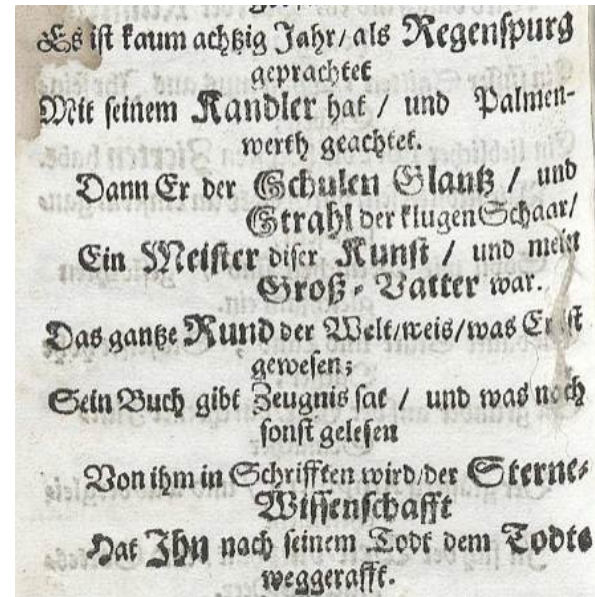 Es ist kaum achtzig Jahr/ als Regenspurg
geprachtet
Mit seinem Kandler hat / und Palmen-
werth geachtet.
Dann Er der Schulen Glantz / und
Strahl der klugen Schaar/
Ein Meister diser Kunst / und meist
Groß-Vatter war.
Das gantze Rund der Welt/weis/was Er ist
gewesen;
Sein Buch gibt Zeugnis sat / und was noch
sonst gelesen
Von ihm in Schrifften wird/der Sterne-
Wissenschafft
Hat Ihn nach seinem Todt dem Todte
weggerafft.